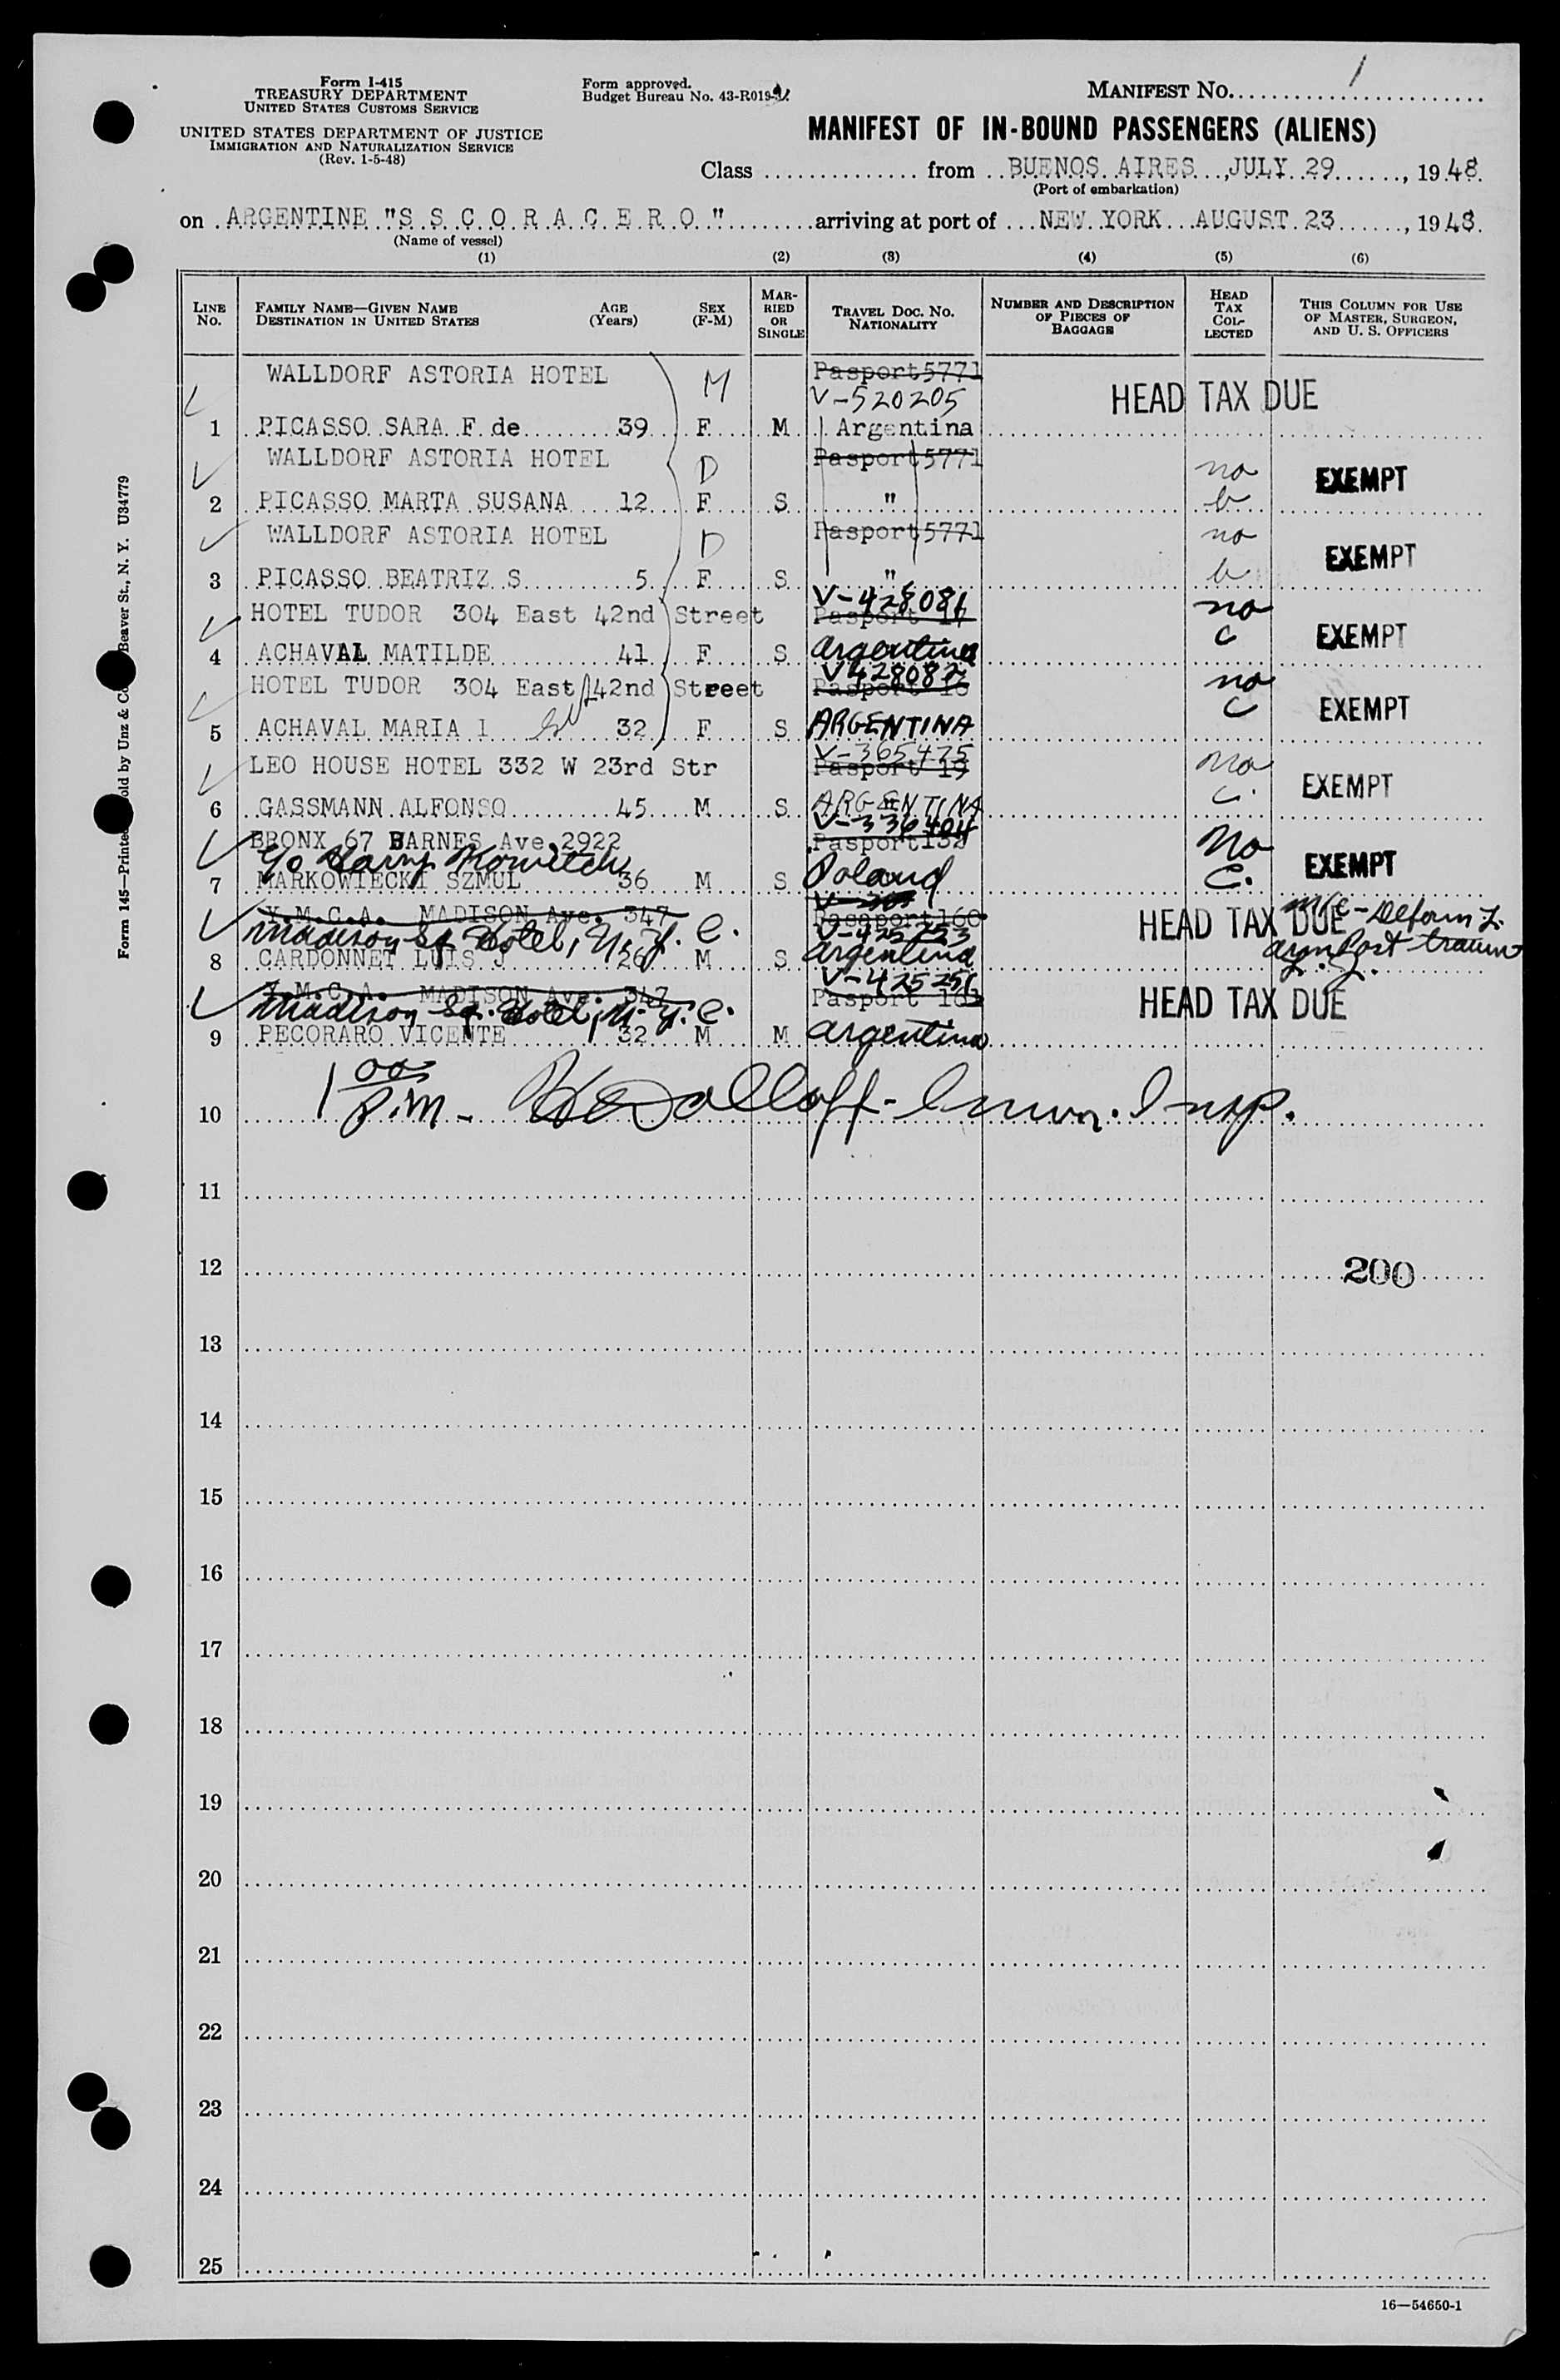 Form I-415
TREASURY DEPARTMENT
UNITED STATES CUSTOMS SERVICE
UNITED STATES DEPARTMENT OF JUSTICE
IMMIGRATION AND NATURALIZATION SERVICE
(Rev. 1-5-48)
Form approved.
Budget Bureau No. 43-R019
MANIFEST NO. 1
MANIFEST OF IN-BOUND PASSENGERS (ALIENS)
Class from BUENOS AIRES, JULY 29, 1948.
(Port of embarkation)
on ARGENTINE "S S C O R A C E R O" arriving at port of NEW YORK AUGUST 23, 1948.
(Name of vessel)
(1) (2) (3) (4) (5) (6)
LINE NO. FAMILY NAME—GIVEN NAME DESTINATION IN UNITED STATES AGE (Years) SEX (F-M) MARRIED OR SINGLE TRAVEL DOC. NO. NATIONALITY NUMBER AND DESCRIPTION OF PIECES OF BAGGAGE HEAD TAX COLLECTED THIS COLUMN FOR USE OF MASTER, SURGEON, AND U. S. OFFICERS
WALLDORF ASTORIA HOTEL M Pasport5771
V-520205 HEAD TAX DUE
1 PICASSO SARA F de 39 F M Argentina
WALLDORF ASTORIA HOTEL D Pasport5771 no EXEMPT
2 PICASSO MARTA SUSANA 12 F S " b
WALLDORF ASTORIA HOTEL D Pasport5771 no EXEMPT
3 PICASSO BEATRIZ S 5 F S " b
V-428081
HOTEL TUDOR 304 East 42nd Street Pasport no EXEMPT
4 ACHAVAL MATILDE 41 F S Argentina c
V428087
HOTEL TUDOR 304 East 42nd Street Pasport no EXEMPT
5 ACHAVAL MARIA l 32 F S ARGENTINA c
V-365475
LEO HOUSE HOTEL 332 W 23rd Str Pasport 19 no EXEMPT
6 GASSMANN ALFONSO 45 M S ARGENTINA c.
V-336404
BRONX 67 BARNES Ave 2922 Pasport132 No EXEMPT
c/o Harry
7 MARKOWIECKI SZMUL 36 M S Poland c.
Y.M.C.A. MADISON Ave. 347 Pasaport160 HEAD TAX DUE
Madison Sq Hotel, N.Y.C. V-425253
8 CARDONNET LUIS J 26 M S Argentina
V-425251
Y.M.C.A. MADISON Ave. 347 Pasport HEAD TAX DUE
Madison Sq. Hotel, N.Y.C.
9 PECORARO VICENTE 32 M M Argentina
1 00 P.M. - Immn. Insp.
10
11
12 200
13
14
15
16
17
18
19
20
21
22
23
24
25
16—54650-1
Form 145—Printed Beaver St., N. Y. U34779